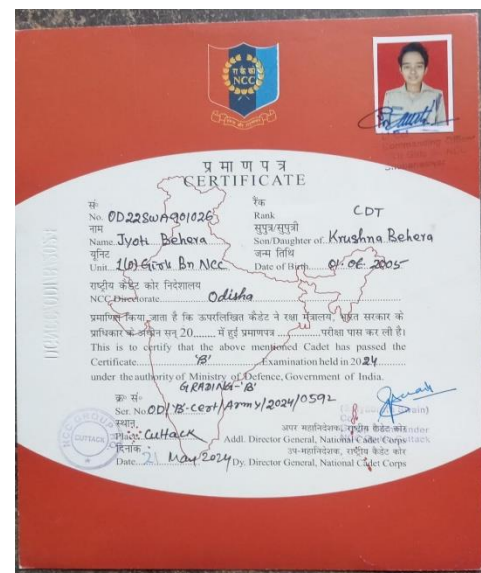 एन सी सी
NCC
प्रमाणपत्र
CERTIFICATE
सं॰ रैंक
No. OD22SWA901026 Rank CDT
नाम सुपुत्र/सुपुत्री
Name Jyoti Behera Son/Daughter of Krushna Behera
यूनिट जन्म तिथि
Unit 1(O) Girls Bn NCC Date of Birth 01.06.2005
राष्ट्रीय कैडेट कोर निदेशालय
NCC Directorate Odisha
प्रमाणित किया जाता है कि ऊपरलिखित कैडेट ने रक्षा मंत्रालय, भारत सरकार के
प्राधिकार के अधीन सन् 20........ में हुई प्रमाणपत्र .................. परीक्षा पास कर ली है।
This is to certify that the above mentioned Cadet has passed the
Certificate 'B' Examination held in 2024
under the authority of Ministry of Defence, Government of India.
GRADING-'B'
क्र॰ सं॰
Ser. No OD/'B'-Cert/Army/2024/0592
स्थान
Place Cuttack
अपर महानिदेशक, राष्ट्रीय कैडेट कोर
Addl. Director General, National Cadet Corps
दिनांक उप-महानिदेशक, राष्ट्रीय कैडेट कोर
Date 21 May 2024 Dy. Director General, National Cadet Corps
NCC GROUP
CUTTACK